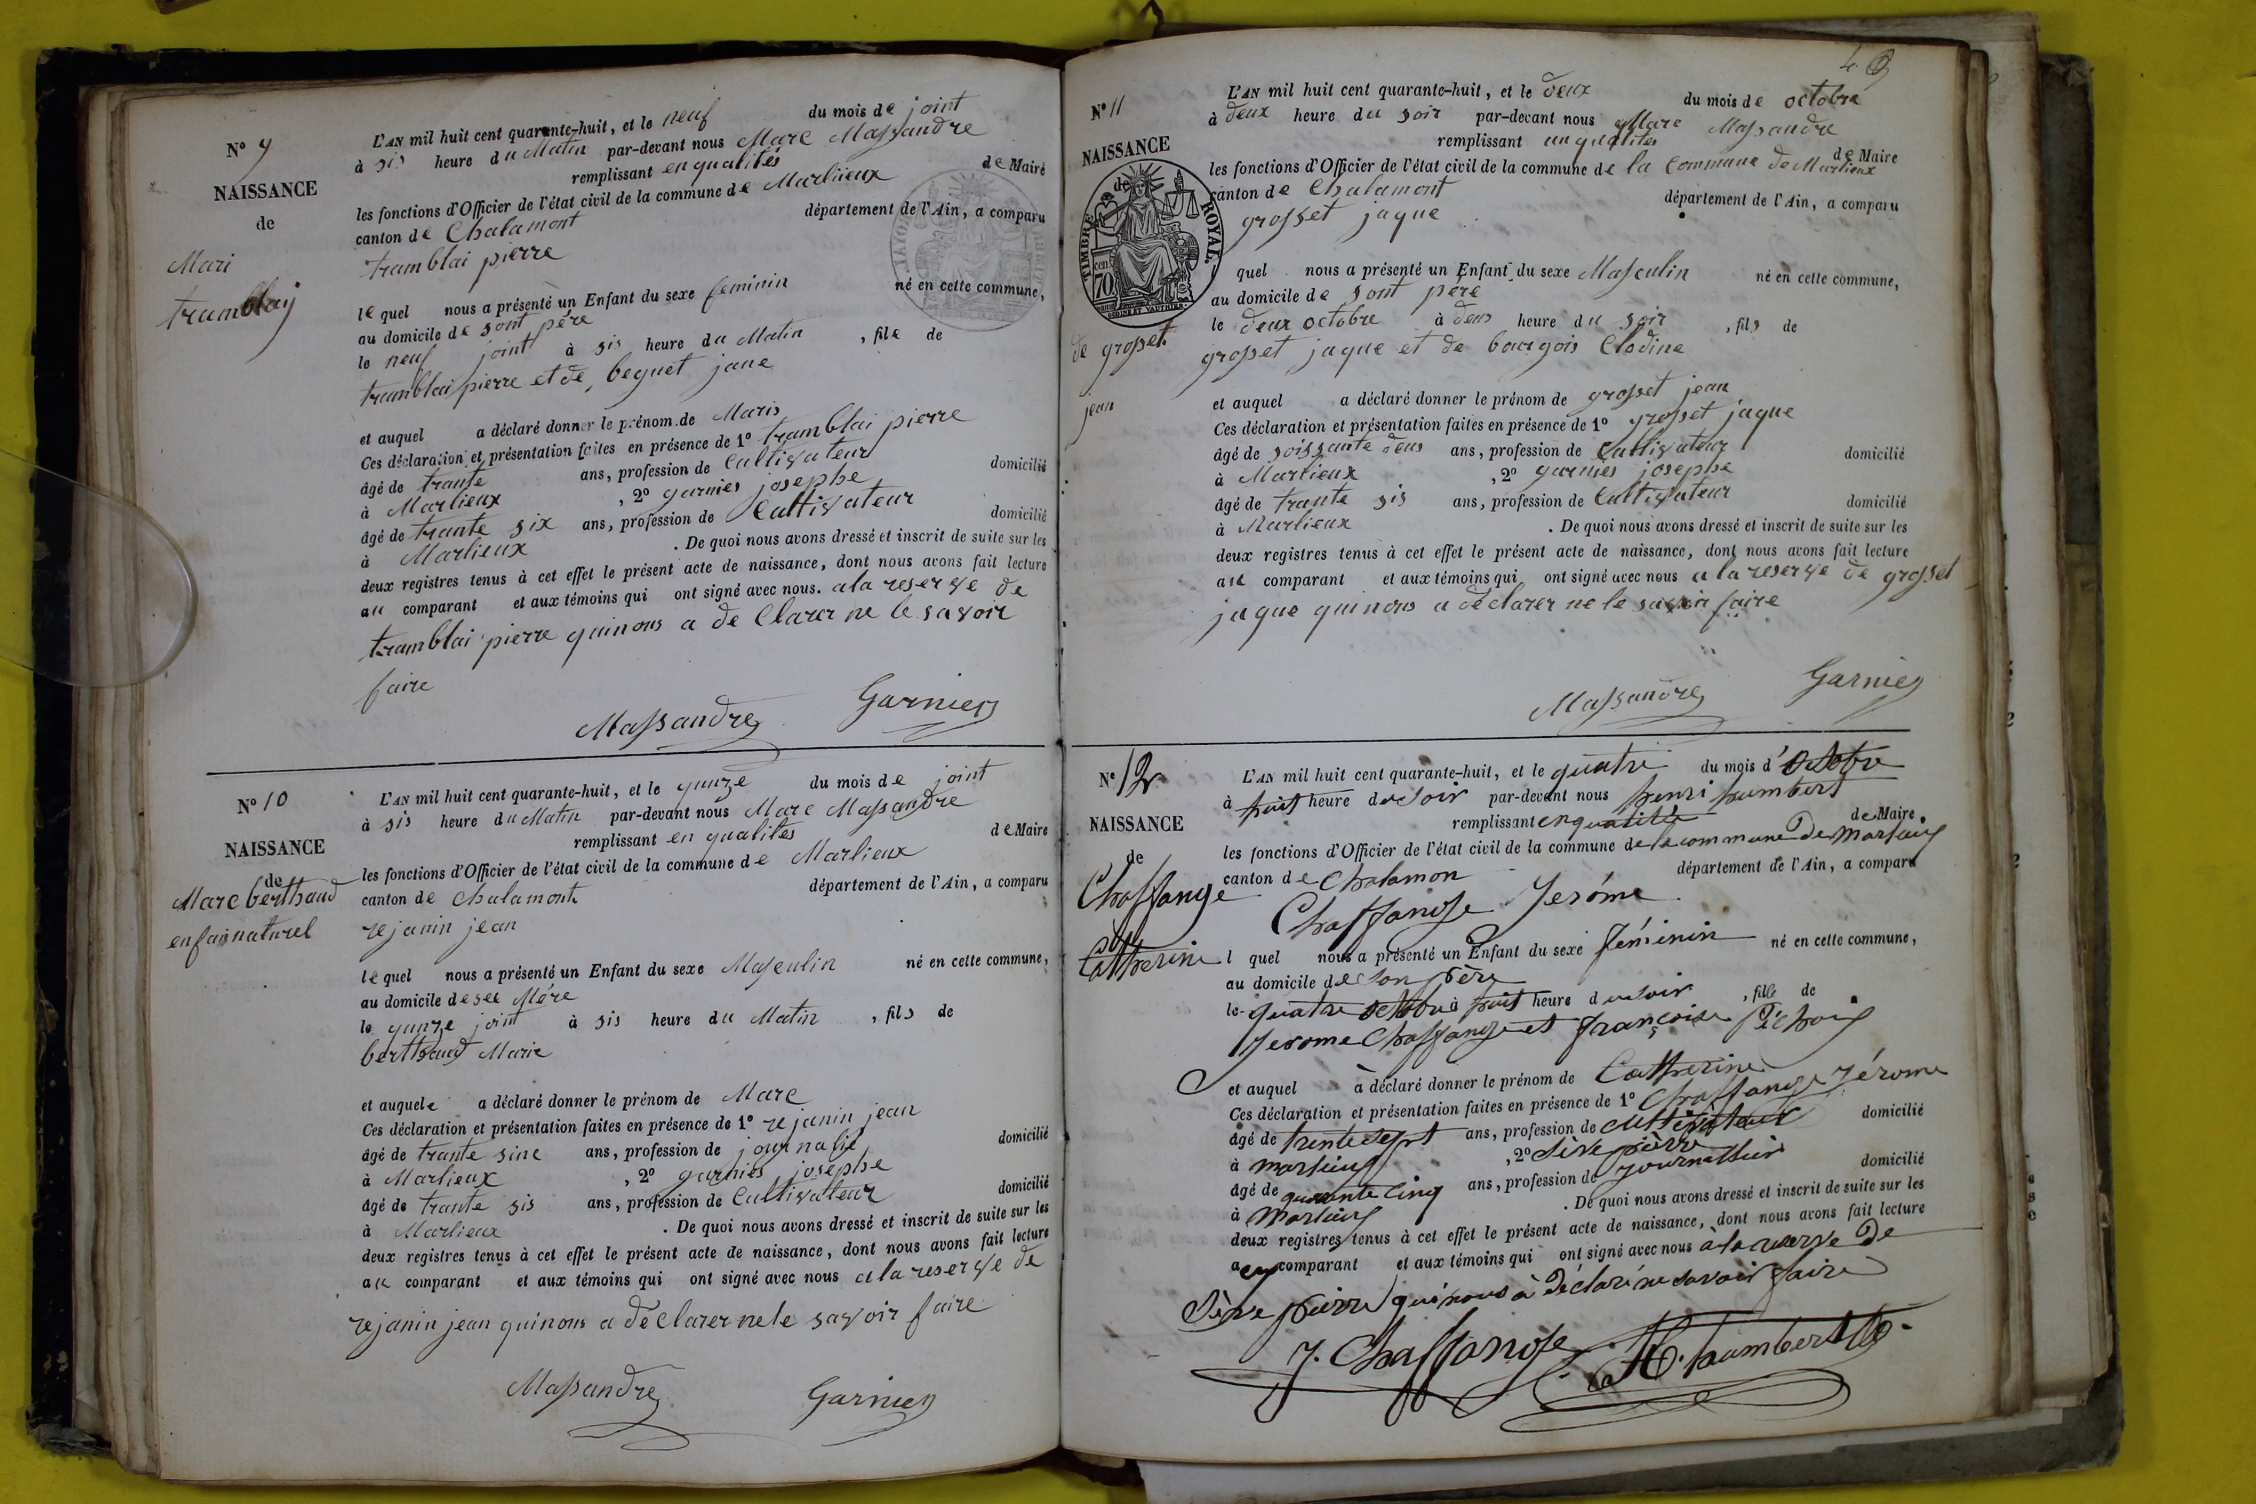 N° 9
NAISSANCE
de
Mari
tramblaij
L'AN mil huit cent quarante-huit, et le neuf du mois de joint
à sis heure du Matin par-devant nous Marc Massandre
remplissant en qualités de Maire
les fonctions d'Officier de l'état civil de la commune de Marliieux
canton de Chalamont département de l'Ain, a comparu
tramblai pierre
le quel nous a présenté un Enfant du sexe feminin né en cette commune,
au domicile de sont pére
le neuf joint à sis heure du Matin , file de
tramblai pierre et de beguet jane
et auquel a déclaré donner le prénom de Maris
Ces déclaration et présentation faites en présence de 1° tramblai pierre
âgé de trante ans, profession de Cultivateur domicilié
à Marlieux , 2° garnies josephe
âgé de trante six ans, profession de Cultivateur domicilié
à Marlieux . De quoi nous avons dressé et inscrit de suite sur les
deux registres tenus à cet effet le présent acte de naissance, dont nous avons fait lecture
au comparant et aux témoins qui ont signé avec nous. a la reserve de
tramblai pierre qui nous a de Clarer ne le savoir
faire
Massandre Garnier
N° 10
NAISSANCE
de
Marc berthaud
enfan naturel
L'AN mil huit cent quarante-huit, et le qunze du mois de joint
à sis heure du Matin par-devant nous Marc Massandre
remplissant en qualités de Maire
les fonctions d'Officier de l'état civil de la commune de Marlieux
canton de Chalamont département de l'Ain, a comparu
rejanin jean
le quel nous a présenté un Enfant du sexe Masculin né en cette commune,
au domicile de see Mére
le qunze joint à sis heure du Matin , fils de
berthaud Marie
et auquele a déclaré donner le prénom de Marc
Ces déclaration et présentation faites en présence de 1° rejanin jean
âgé de trante sinc ans, profession de journalié domicilié
à Marlieux , 2° garnies josephe
âgé de trante sis ans, profession de Cultivateur domicilié
à Marlieux . De quoi nous avons dressé et inscrit de suite sur les
deux registres tenus à cet effet le présent acte de naissance, dont nous avons fait lecture
au comparant et aux témoins qui ont signé avec nous a la reserve de
rejanin jean qui nous a de Clarer ne le savoir faire
Massandre Garnier
N° 11
NAISSANCE
de
TIMBRE ROYAL.
70 cen
de grosset
jean
L'AN mil huit cent quarante-huit, et le deux du mois de octobre
à deux heure du soir par-devant nous Marc Massandre
remplissant en qualités de Maire
les fonctions d'Officier de l'état civil de la commune de la Commune de Marlieux
canton de Chalamont département de l'Ain, a comparu
grosset jaque
quel nous a présenté un Enfant du sexe Masculin né en cette commune,
au domicile de sont pére
le deux octobre à deus heure du soir , fils de
grosset jaque et de bourgois Clodine
et auquel a déclaré donner le prénom de grosset jean
Ces déclaration et présentation faites en présence de 1° grosset jaque
âgé de soissante deus ans, profession de Cultivateur domicilié
à Marlieux , 2° garnies josephe
âgé de trante sis ans, profession de Cultivateur domicilié
à Marlieux . De quoi nous avons dressé et inscrit de suite sur les
deux registres tenus à cet effet le présent acte de naissance, dont nous avons fait lecture
au comparant et aux témoins qui ont signé avec nous a la reserve de grosset
jaque qui nous a déclarer ne le savoir faire
Massandre Garnier
N° 12
NAISSANCE
de
Chaffange
Catherine
L'AN mil huit cent quarante-huit, et le quatre du mois d'Octobre
à huit heure du soir par-devant nous henri humbert
remplissant en qualité de Maire
les fonctions d'Officier de l'état civil de la commune de la commune De Marlieux
canton de Chalamon département de l'Ain, a comparu
Chaffange Jerôme
l quel nous a présenté un Enfant du sexe féminin né en cette commune,
au domicile de son père
le quatre octobre à huit heure du soir , fille de
Jerome Chaffange et françoise
et auquel à déclaré donner le prénom de Catherine
Ces déclaration et présentation faites en présence de 1° Chaffange Jérome
âgé de trente sept ans, profession de cultivateur domicilié
à Marlieux , 2° Sève pierre
âgé de quarante cinq ans, profession de journallier domicilié
à Marlieux . De quoi nous avons dressé et inscrit de suite sur les
deux registres tenus à cet effet le présent acte de naissance, dont nous avons fait lecture
au comparant et aux témoins qui ont signé avec nous à la reserve De
Sève pierre qui nous à déclaré ne savoir faire
J. Chaffange H. humbert